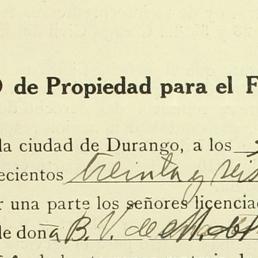 O de Propiedad para el F
la ciudad de Durango, a los
ecientos treinta y seis
r una parte los señores licenciad
le doña B. V. de